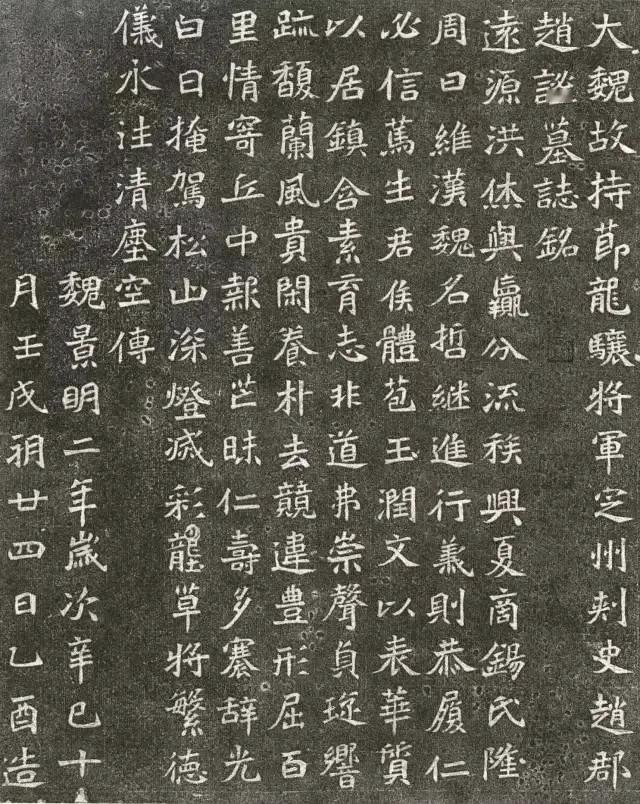 大魏故持節龍驤將軍定州刾史趙郡
趙謐墓誌銘
遠源洪休與嬴分流族興夏商錫氏隆
周曰維漢魏名哲継進行義則恭履仁
必信篤生君侯體苞玉潤文以表華質
以居鎮含素育志非道弗崇聲貞琁響
跡馥蘭風貴閑養朴去競違豊形屈百
里情寄丘中報善芒昧仁壽多褰辞光
白日掩駕松山深燈滅彩壟草將繁德
儀永往清塵空傳
魏景明二年歲次辛巳十
月壬戌朔廿四日乙酉造